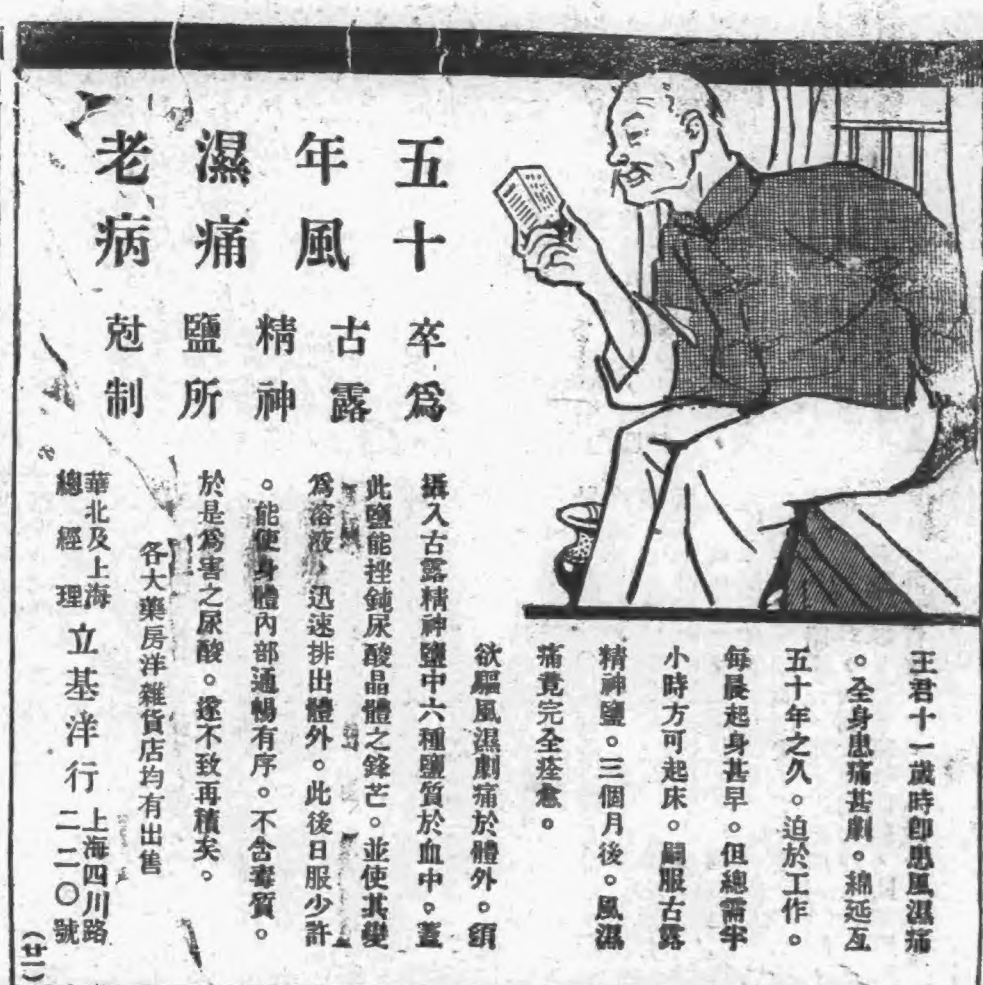 五十
年風
濕痛
老病
卒爲
古露
精神
鹽所
尅制
王君十一歲時卽患風濕痛
。全身患痛甚劇。綿延亙
五十年之久。迫於工作。
每晨起身甚早。但總需半
小時方可起床。嗣服古露
精神鹽。三個月後。風濕
痛竟完全痊愈。
欲驅風濕劇痛於體外。須
攝入古露精神鹽中六種鹽質於血中。蓋
此鹽能挫鈍尿酸晶體之鋒芒。並使其變
爲溶液。迅速排出體外。此後日服少許
。能使身體內部通暢有序。不含毒質。
於是爲害之尿酸。遂不致再積矣。
各大藥房洋雜貨店均有出售
華北及上海
總經理
立基洋行
上海四川路
二二〇號
(廿一)